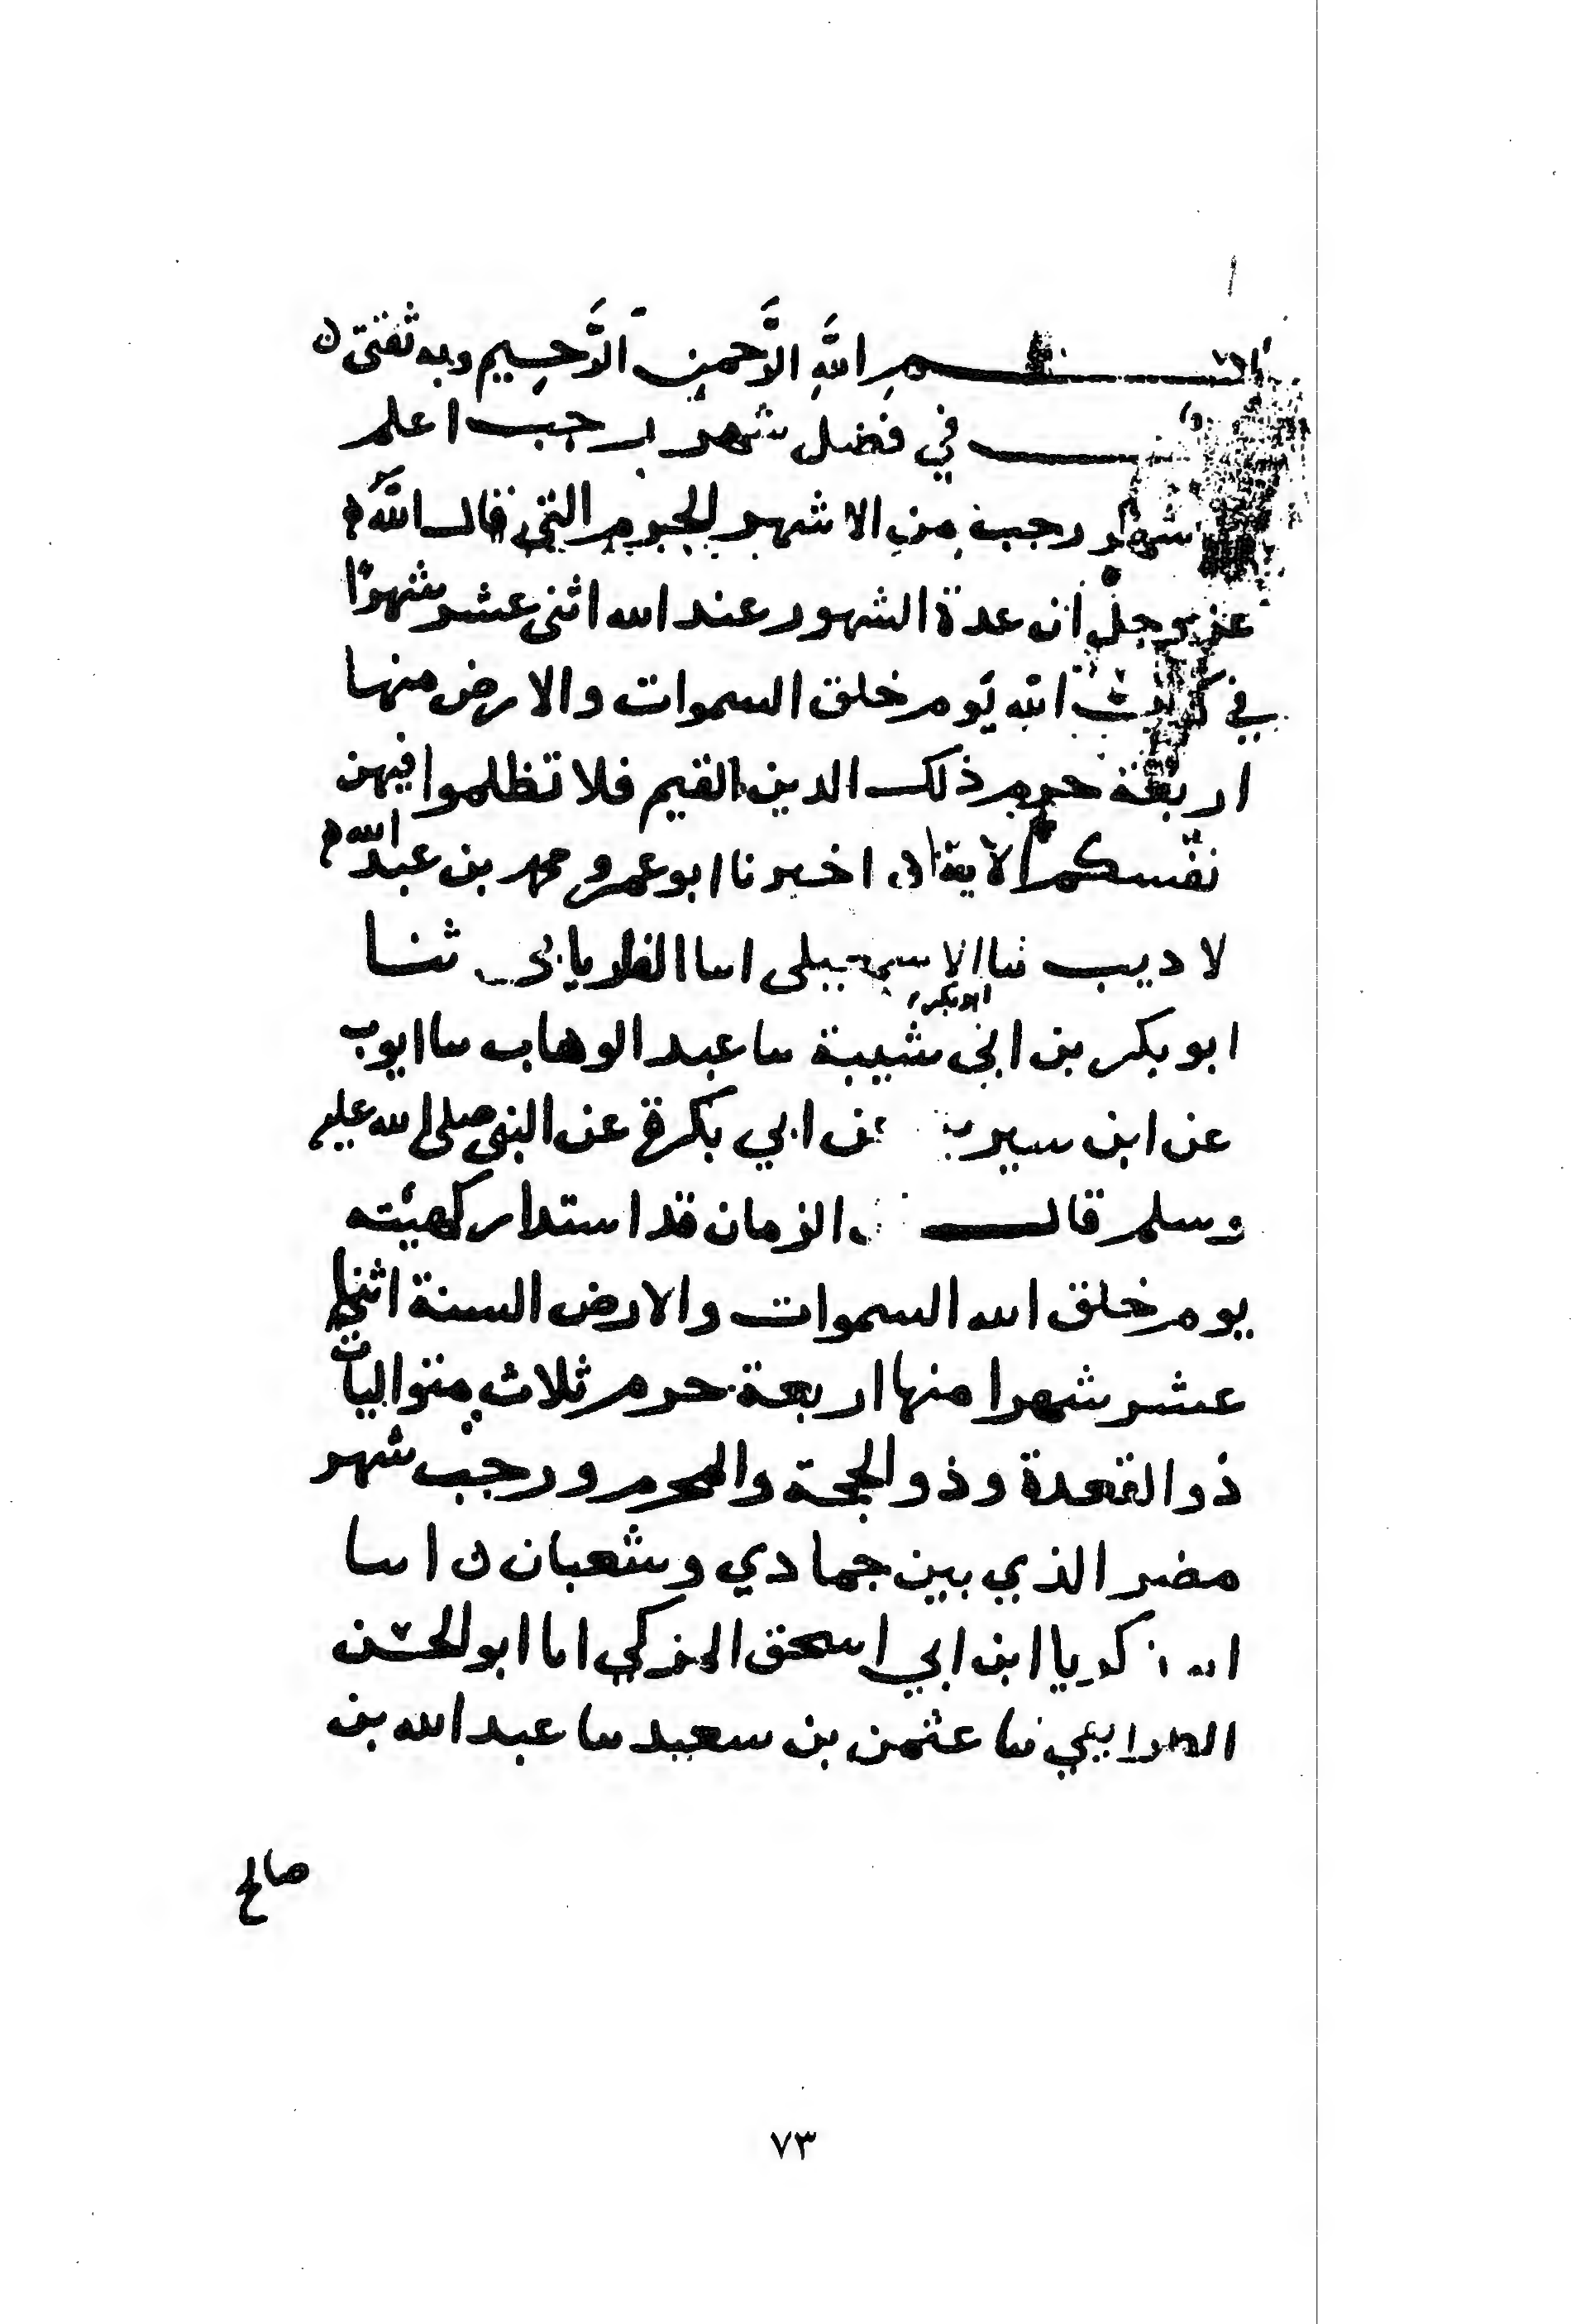 بسم اللَّهِ الرَّحمنِ الرَّحِيم وبه ثقتي ن
في فضل شهر رجب اعلم
شهر رجب من الاشهر الحرم التي قال اللَّه
عز وجلّ ان عدة الشهور عند الله اثنى عشر شهرًا
في كتاب الله يوم خلق السموات والارض منها
اربعة حرم ذلك الدين القيم فلا تظلموا فيهن
نفسكم الآية ن اخبرنا ابو عمرو محمد بن عبد الله
لاديب ثنا الاسمعيلى اسا الفاريابى ثنا
ابو بكر
ابو بكر بن ابي شيبة سا عبد الوهاب سا ايوب
عن ابن سيرين عن ابي بكرة عن النبى صلى الله عليه
وسلم قال الزمان قد استدار كهيئته
يوم خلق الله السموات والارض السنة اثنا
عشر شهرا منها اربعة حرم ثلاث متواليات
ذو القعدة وذو الحجة والمحرم ورجب شهر
مضر الذي بين جمادي وشعبان ن اسا
كريا ابن ابي اسحق المزكي اسا ابو الحسن
الطرايفي سا عثمن بن سعيد سا عبد الله بن
صالح
٧٣